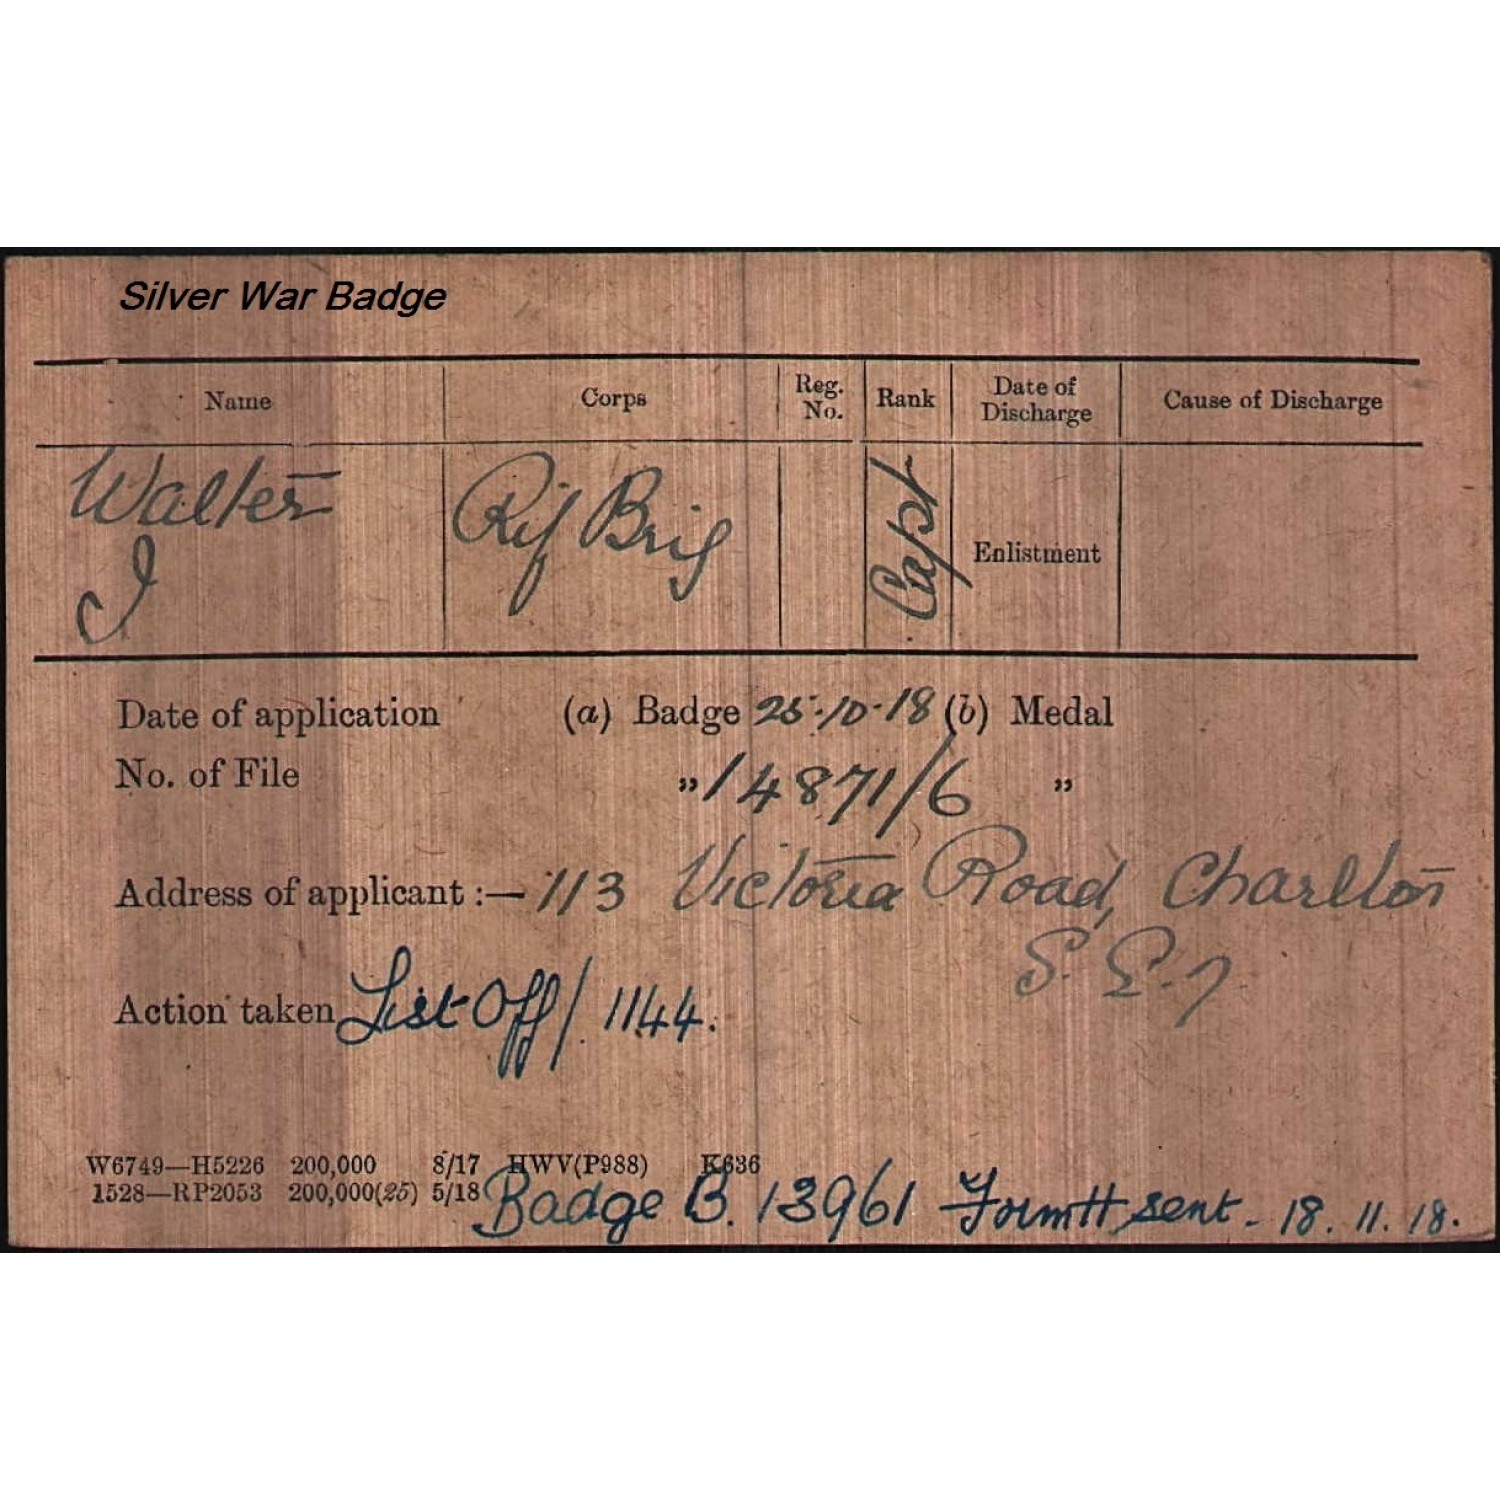 Silver War Badge
Name Corps Reg. No. Rank Date of Discharge Cause of Discharge
Walter Rif Brig Capt Enlistment
J
Date of application (a) Badge 25-10-18 (b) Medal
No. of File „ 14871/6 „
Address of applicant :— 113 Victoria Road, Charlton
S.E.7
Action taken List Off/1144.
W6749—H5226 200,000 8/17 HWV(P988) K636
1528—RP2053 200,000(25) 5/18
Badge B. 13961 sent - 18.11.18.